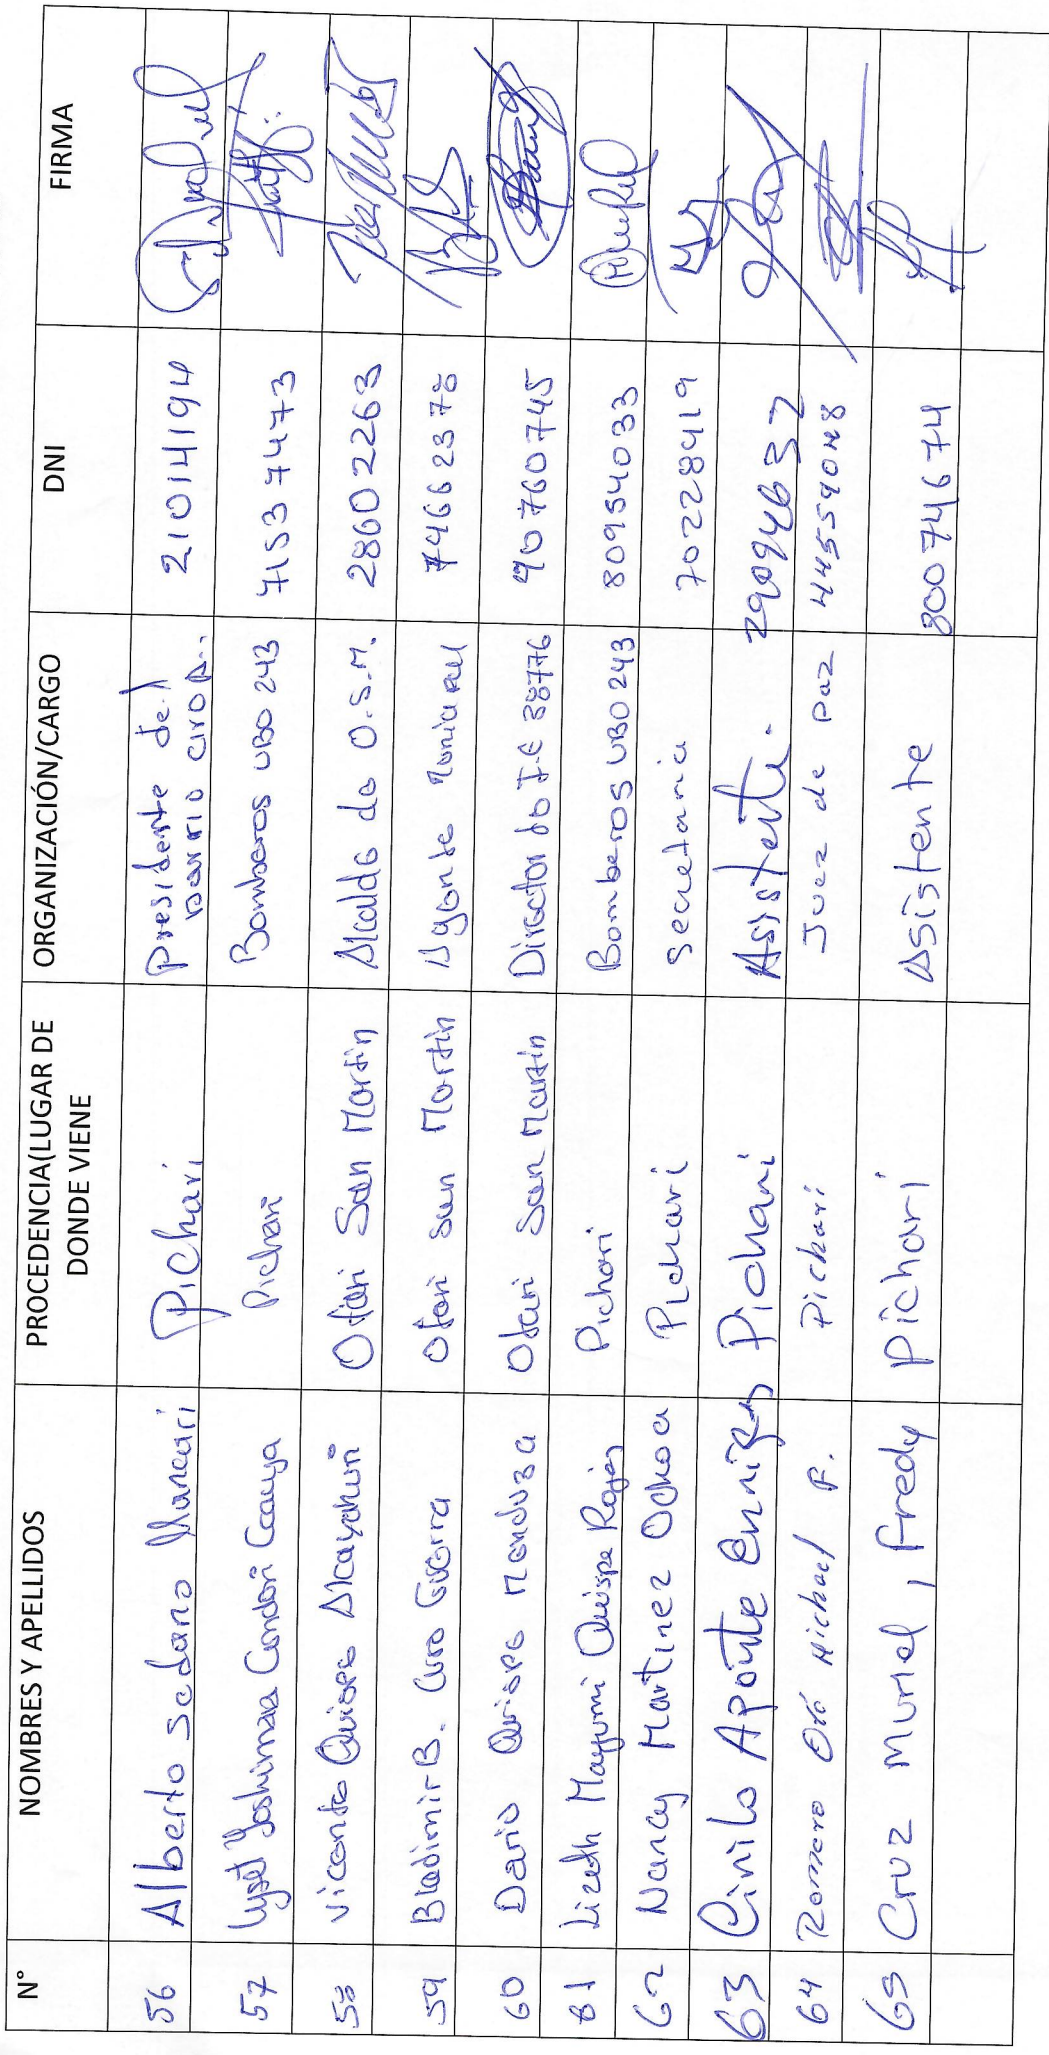 N° NOMBRES Y APELLIDOS PROCEDENCIA(LUGAR DE DONDE VIENE ORGANIZACIÓN/CARGO DNI FIRMA
56 Alberto Sedano Pichari Presidente del barrio 21014194
57 Pichari Bomberos UBO 243 71537473
58 Vicente Quispe Otari San Martin Alcalde de O.S.M. 28602263
59 Bladimir B. Otari San Martin Agente 74662378
60 Dario Quispe Mendoza Otari San Martin Director de I.E 38776 40760745
61 Lizeth Mayumi Quispe Rojas Pichari Bomberos UBO 243 80954033
62 Nancy Martinez Ochoa Pichari Secretaria 70228419
63 Cirilo Aponte Pichari Asistente.
64 Romero Oré Michael F. Pichari Juez de Paz
65 Cruz Muriel, Fredy Pichari Asistente 80074674